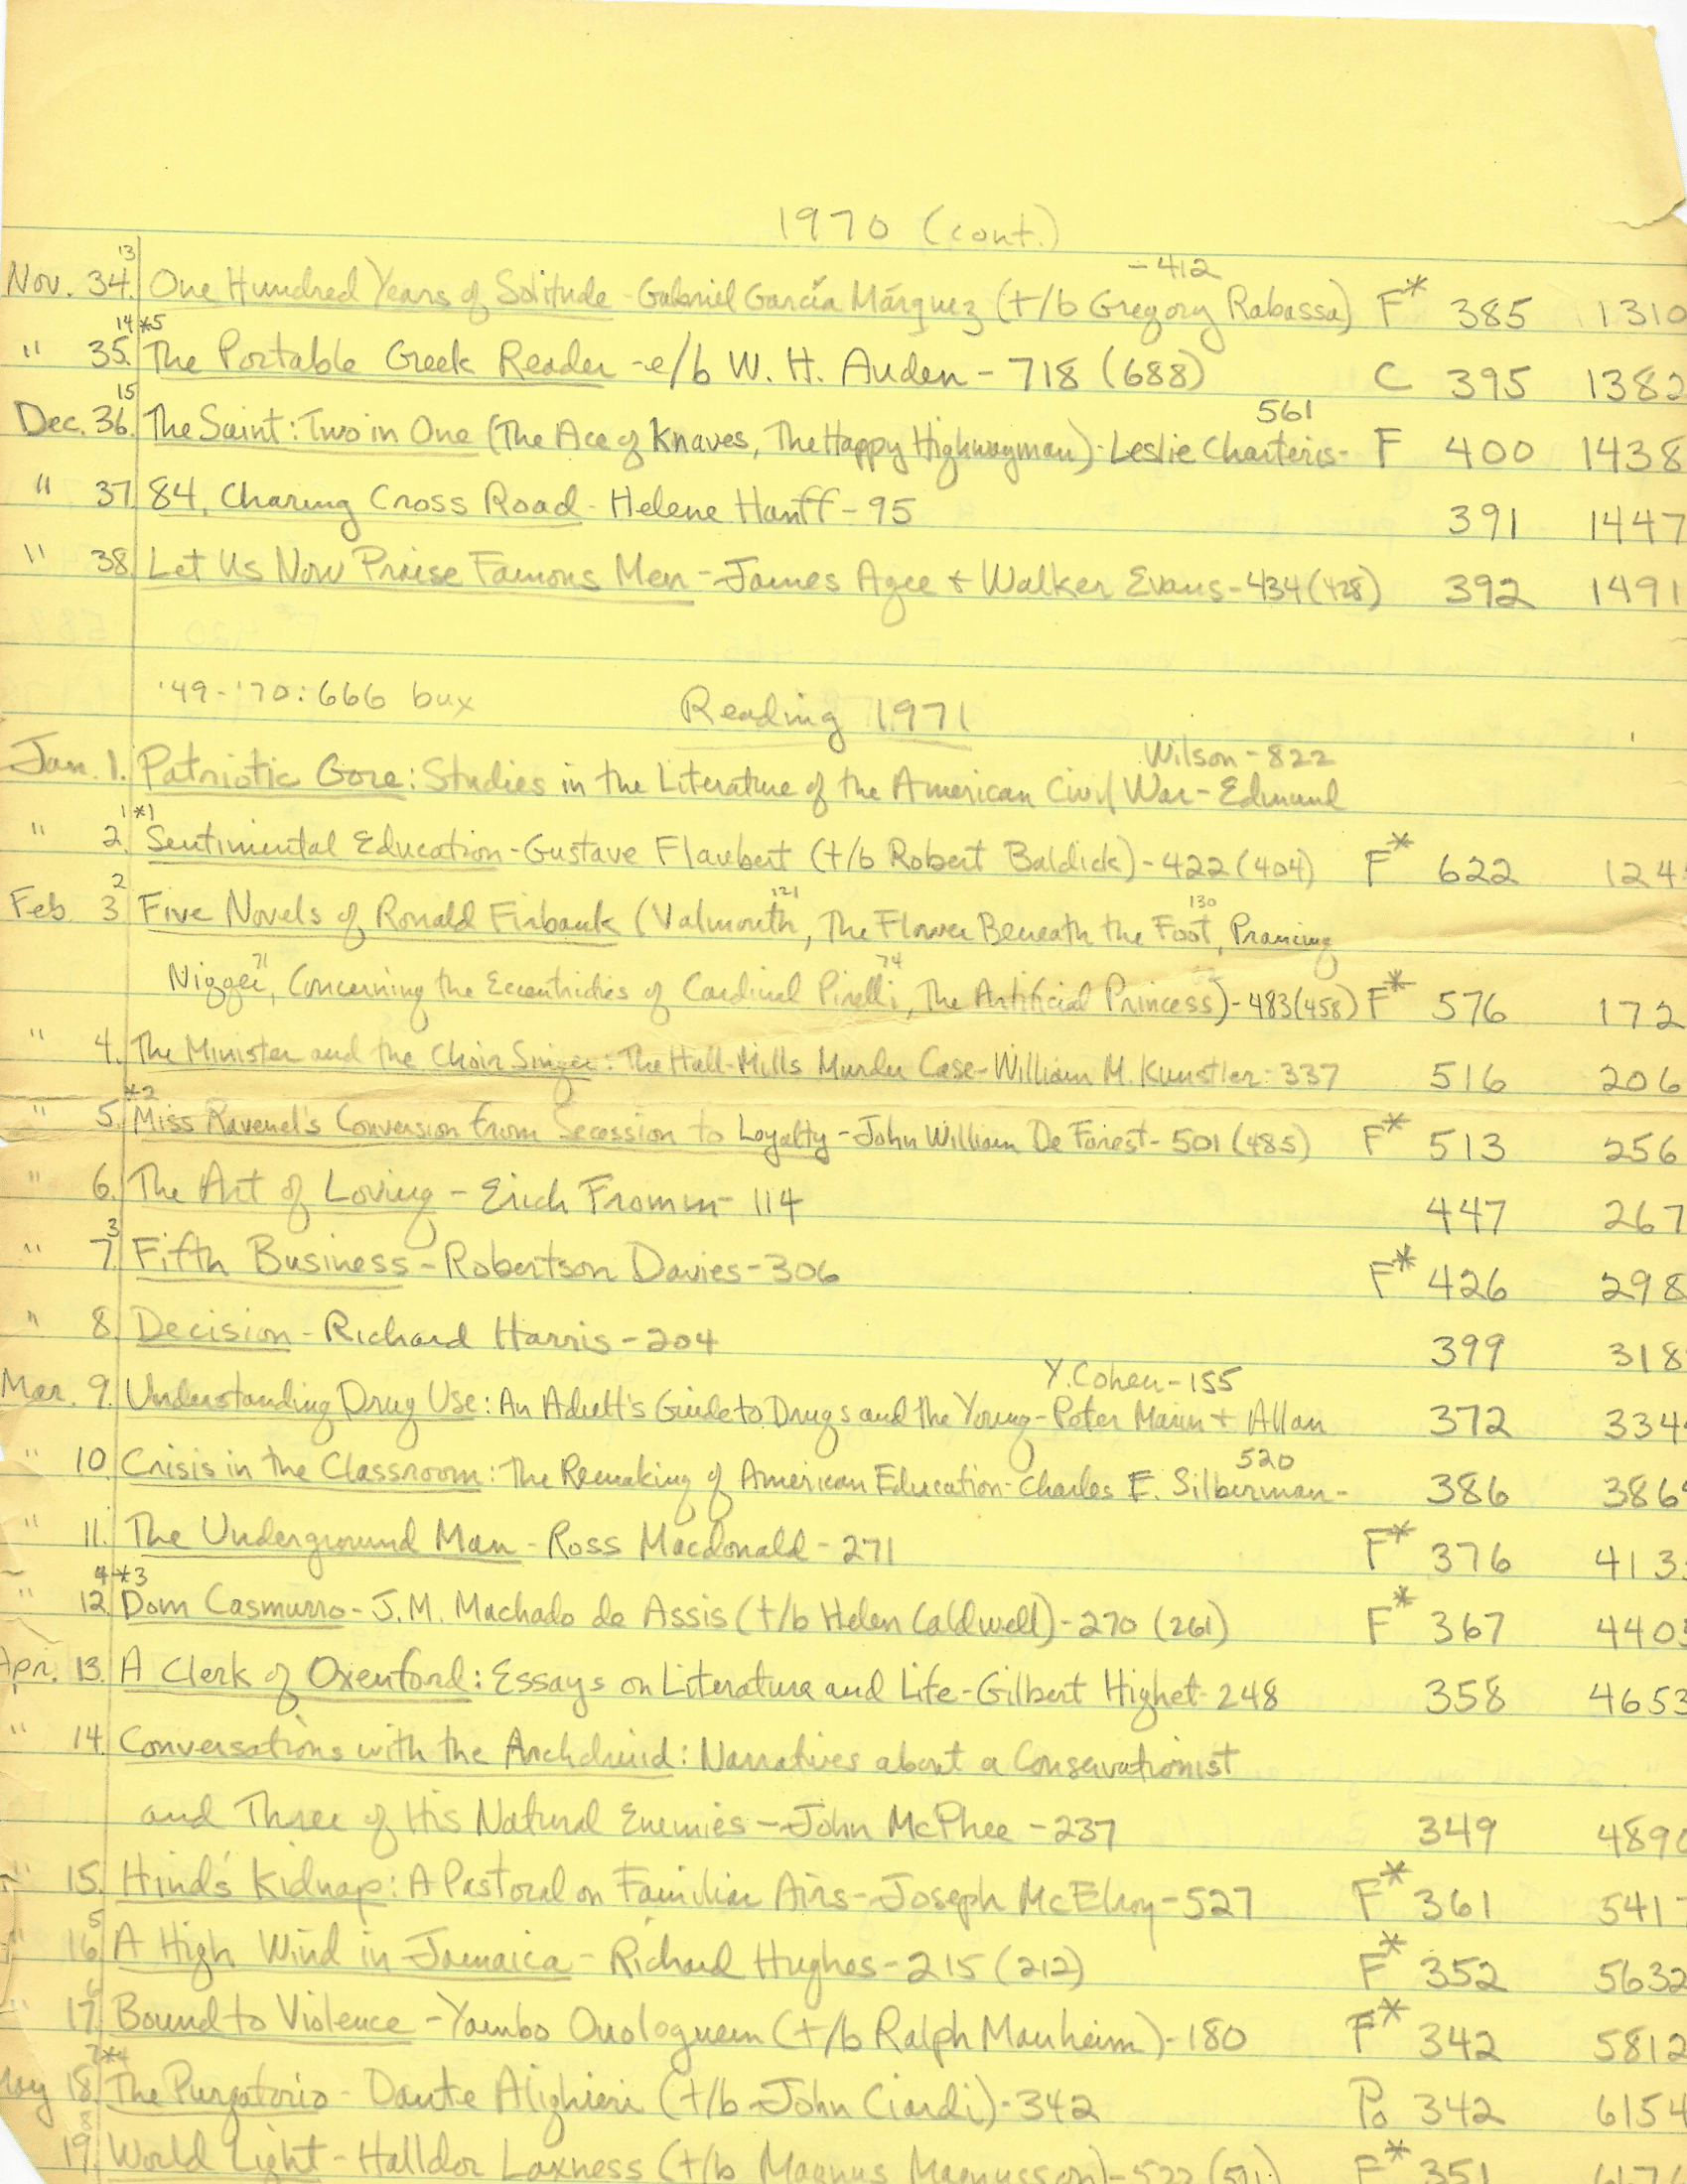 1970 (cont.)
13 -412
Nov. 34. One Hundred Years of Solitude - Gabriel García Márquez (t/b Gregory Rabassa) F* 385 1310
14 *5
" 35. The Portable Greek Reader - e/b W. H. Auden - 718 (688) C 395 1382
15 561
Dec. 36. The Saint: Two in One (The Ace of Knaves, The Happy Highwayman) - Leslie Charteris - F 400 1438
" 37. 84, Charing Cross Road - Helene Hanff - 95 391 1447
" 38. Let Us Now Praise Famous Men - James Agee + Walker Evans - 434 (428) 392 1491
'49-'70: 666 bux Reading 1971
Wilson - 822
Jan. 1. Patriotic Gore: Studies in the Literature of the American Civil War - Edmund
1 *1
" 2. Sentimental Education - Gustave Flaubert (t/b Robert Baldick) - 422 (404) F* 622 124
2 121 130
Feb. 3 Five Novels of Ronald Firbank (Valmouth, The Flower Beneath the Foot, Prancing
71 74
Nigger, Concerning the Eccentricities of Cardinal Pirelli, The Artificial Princess) - 483 (458) F* 576 172
" 4. The Minister and the Choir Singer: The Hall-Mills Murder Case - William M. Kunstler - 337 516 206
*2
" 5. Miss Ravenel's Conversion from Secession to Loyalty - John William De Forest - 501 (485) F* 513 256
" 6. The Art of Loving - Erich Fromm - 114 447 267
3
" 7. Fifth Business - Robertson Davies - 306 F* 426 298
" 8. Decision - Richard Harris - 204 399 318
Y. Cohen - 155
Mar. 9. Understanding Drug Use: An Adult's Guide to Drugs and the Young - Peter Marin + Allan 372 334
520
" 10. Crisis in the Classroom: The Remaking of American Education - Charles E. Silberman - 386 386
" 11. The Underground Man - Ross Macdonald - 271 F* 376 413
4 *3
" 12. Dom Casmurro - J.M. Machado de Assis (t/b Helen Caldwell) - 270 (261) F* 367 440
Apr. 13. A Clerk of Oxenford: Essays on Literature and Life - Gilbert Highet - 248 358 4653
" 14. Conversations with the Archdruid: Narratives about a Conservationist
and Three of His Natural Enemies - John McPhee - 237 349 489
" 15. Hind's Kidnap: A Pastoral on Familiar Airs - Joseph McElroy - 527 F* 361 541
5
" 16. A High Wind in Jamaica - Richard Hughes - 215 (212) F* 352 5632
6
" 17. Bound to Violence - Yambo Ouologuem (t/b Ralph Manheim) - 180 F* 342 5812
7 *4
May 18. The Purgatorio - Dante Alighieri (t/b John Ciardi) - 342 Po 342 6154
8
19. World Light - Halldor Laxness (t/b Magnus Magnusson) - 522 F* 351